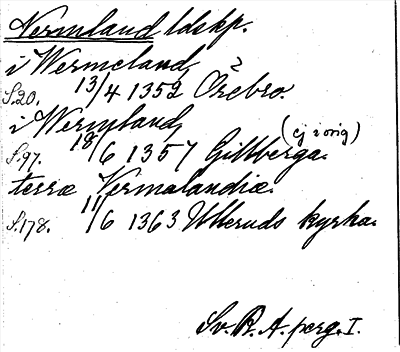 Vermland ldskp.
i Wermeland
S.20. 13/4 1352 Örebro.
i Wermland
S.97. 18/6 1357 Gillberga. (ej i orig)
terræ Vermalandiæ.
S.178. 11/6 1363 Ulleruds kyrka.
Sv. R. A. perg. I.